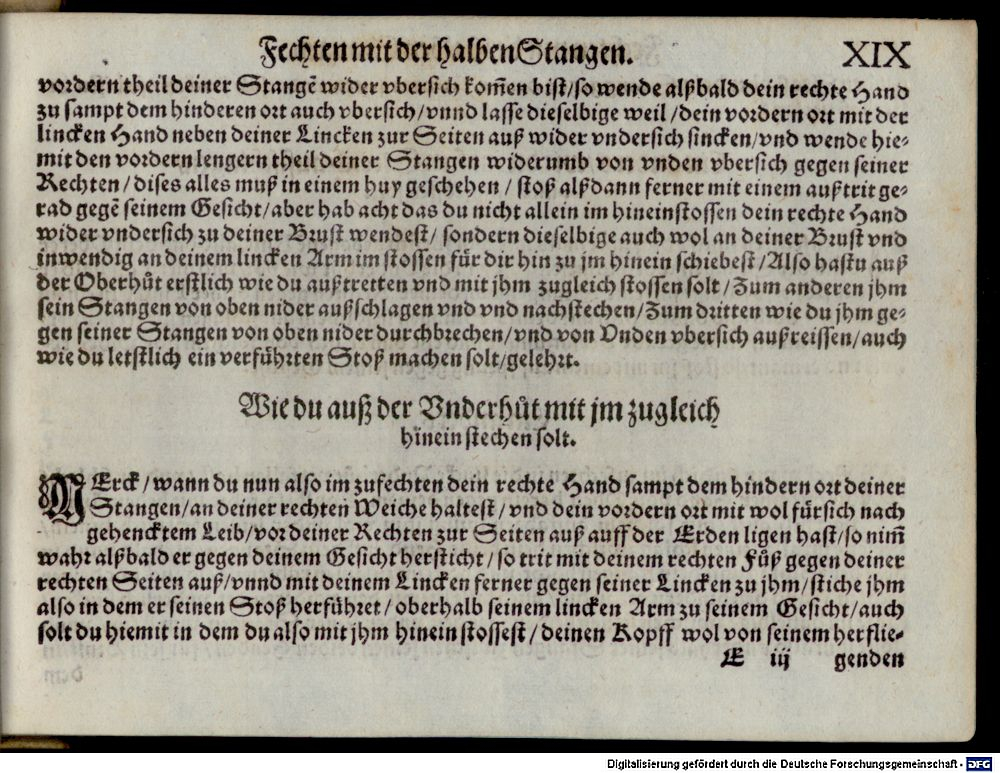 Fechten mit der halben Stangen. XIX
vordern theil deiner Stangẽ wider vbersich kom̃en bist/so wende alßbald dein rechte Hand
zu sampt dem hinderen ort auch vbersich/vnnd lasse dieselbige weil/dein vordern ort mit der
lincken Hand neben deiner Lincken zur Seiten auß wider vndersich sincken/vnd wende hie-
mit den vordern lengern theil deiner Stangen widerumb von vnden vbersich gegen seiner
Rechten/dises alles muß in einem huy geschehen/stoß alßdann ferner mit einem außtrit ge-
rad gegẽ seinem Gesicht/aber hab acht das du nicht allein im hineinstossen dein rechte Hand
wider vndersich zu deiner Brust wendest/sondern dieselbige auch wol an deiner Brust vnd
inwendig an deinem lincken Arm im stossen für dir hin zu jm hinein schiebest/Also hastu auß
der Oberhůt erstlich wie du außtretten vnd mit jhm zugleich stossen solt/Zum anderen jhm
sein Stangen von oben nider außschlagen vnd vnd nachstechen/Zum dritten wie du jhm ge-
gen seiner Stangen von oben nider durchbrechen/vnd von Vnden vbersich außreissen/auch
wie du letstlich ein verführten Stoß machen solt/gelehrt.
Wie du auß der Vnderhůt mit jm zugleich
hinein stechen solt.
MErck/wann du nun also im zufechten dein rechte Hand sampt dem hindern ort deiner
Stangen/an deiner rechten Weiche haltest/vnd dein vordern ort mit wol fürsich nach
gehencktem Leib/vor deiner Rechten zur Seiten auß auff der Erden ligen hast/so nim̃
wahr alßbald er gegen deinem Gesicht hersticht/so trit mit deinem rechten Fůß gegen deiner
rechten Seiten auß/vnnd mit deinem Lincken ferner gegen seiner Lincken zu jhm/stiche jhm
also in dem er seinen Stoß herführet/oberhalb seinem lincken Arm zu seinem Gesicht/auch
solt du hiemit in dem du also mit jhm hinein stossest/deinen Kopff wol von seinem herflie-
E iij genden
Digitalisierung gefördert durch die Deutsche Forschungsgemeinschaft - DFG